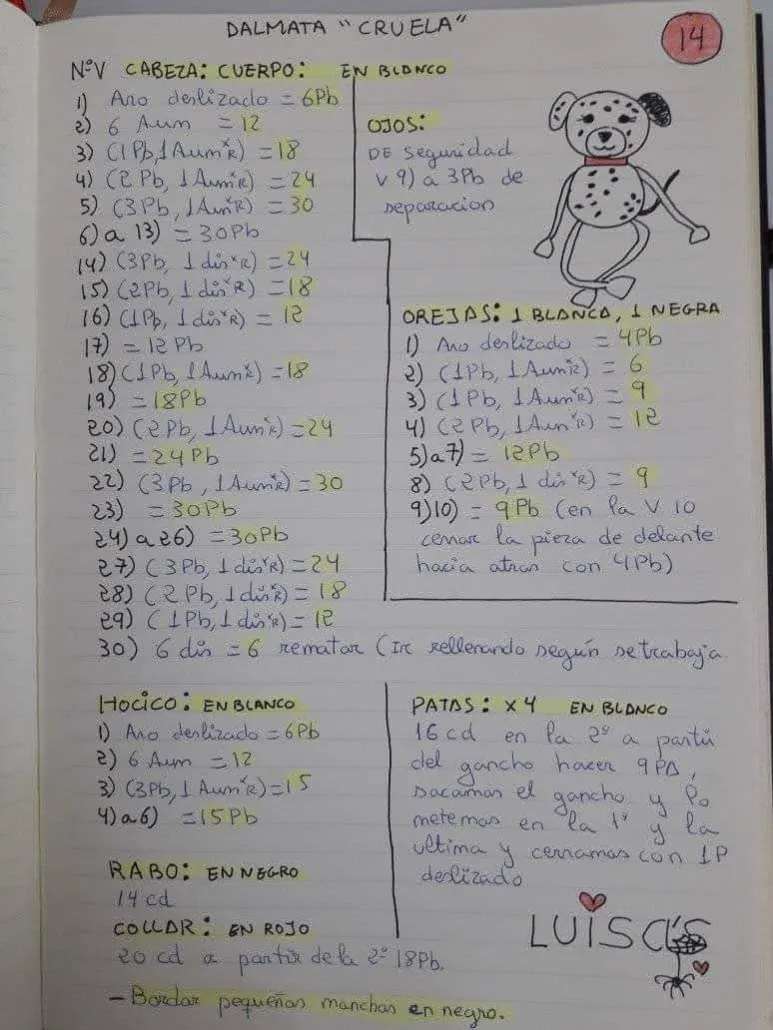 DALMATA "CRUELA"
14
NºV CABEZA: CUERPO: EN BLANCO
1) Aro deslizado = 6Pb
2) 6 Aum = 12
3) (1Pb, 1Aum*R) = 18
4) (2Pb, 1Aum*R) = 24
5) (3Pb, 1Aum*R) = 30
6) a 13) = 30Pb
14) (3Pb, 1 dis*R) = 24
15) (2Pb, 1 dis*R) = 18
16) (1Pb, 1 dis*R) = 12
17) = 12 Pb
18) (1Pb, 1Aum*R) = 18
19) = 18Pb
20) (2Pb, 1Aum*R) = 24
21) = 24Pb
22) (3Pb, 1Aum*R) = 30
23) = 30Pb
24) a 26) = 30Pb
27) (3Pb, 1 dis*R) = 24
28) (2Pb, 1 dis*R) = 18
29) (1Pb, 1 dis*R) = 12
30) 6 dis = 6 rematar (Ir rellenando según se trabaja
OJOS:
DE seguridad
V 9) a 3Pb de
separacion
OREJAS: 1 BLANCA, 1 NEGRA
1) Aro deslizado = 4Pb
2) (1Pb, 1Aum*R) = 6
3) (1Pb, 1Aum*R) = 9
4) (2Pb, 1Aum*R) = 12
5) a 7) = 12Pb
8) (2Pb, 1 dis*R) = 9
9) 10) = 9Pb (en la V 10
cerrar la pieza de delante
hacia atras con 4Pb)
HOCICO: EN BLANCO
1) Aro deslizado = 6Pb
2) 6 Aum = 12
3) (3Pb, 1Aum*R) = 15
4) a 6) = 15Pb
RABO: EN NEGRO
14 cd
COLLAR: EN ROJO
20 cd a partir de la 2º 18Pb.
- Bordar pequeñas manchas en negro.
PATAS: X4 EN BLANCO
16 cd en la 2º a partir
del gancho hacer 9PA,
sacamos el gancho y lo
metemos en la 1º y la
ultima y cerramos con 1P
deslizado
LUISA'S